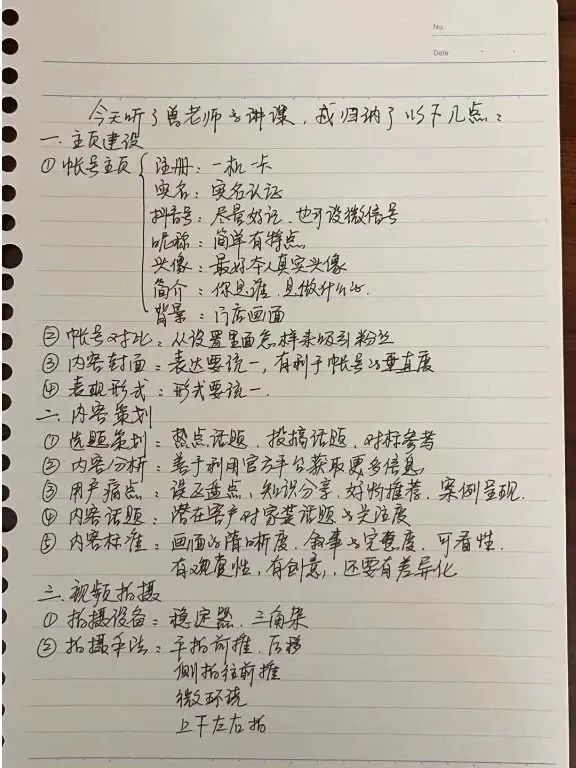 No.
Date
今天听了曾老师的讲课，我归纳了以下几点：
一. 主页建设
① 帐号主页 { 注册：一机一卡
实名：实名认证
抖音号：尽量好记、也可设微信号
昵称：简单有特点
头像：最好本人真实头像
简介：你是谁，是做什么的.
背景：门店画面
② 帐号对比：从设置里面怎样来吸引粉丝
③ 内容封面：表达要统一，有利于帐号的垂直度
④ 表现形式：形式要统一.
二. 内容策划
① 选题策划：热点话题、投搞话题、对标参考
② 内容分析：善于利用官方平台获取更多信息
③ 用户痛点：误区盘点、知识分享、好物推荐、案例呈现.
④ 内容话题：潜在客户对家装话题的关注度
⑤ 内容标准：画面的清晰度、叙事的完整度、可看性.
有观赏性，有创意，还要有差异化
三. 视频拍摄
① 拍摄设备：稳定器、三角架
② 拍摄手法：平拍前推、后移
侧拍往前推
微环绕
上下左右拍